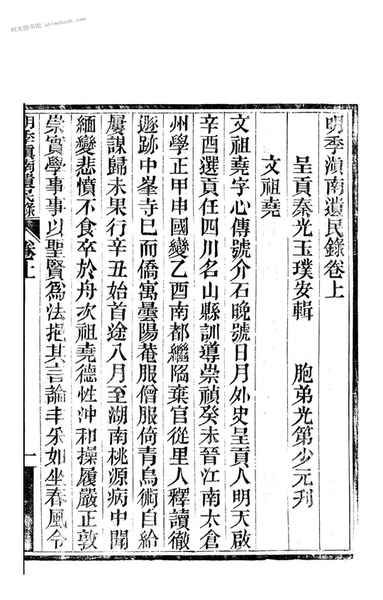 明季滇南遺民錄卷上
呈貢秦光玉璞安輯　胞弟光第少元刋
文祖堯
文祖堯字心傳號介石晚號日月外史呈貢人明天啟
辛酉選貢任四川名山縣訓導崇禎癸未晉江南太倉
州學正甲申國變乙酉南都繼陷棄官從里人釋讀徹
遯跡中峯寺已而僑寓曇陽菴服僧服倚青烏術自給
屢謀歸未果行辛丑始首途八月至湖南桃源病中聞
緬變悲憤不食卒於舟次祖堯德性沖和操履嚴正敦
崇實學事事以聖賢爲法挹其言論丰采如坐春風令
明季滇南遺民錄　卷上　一